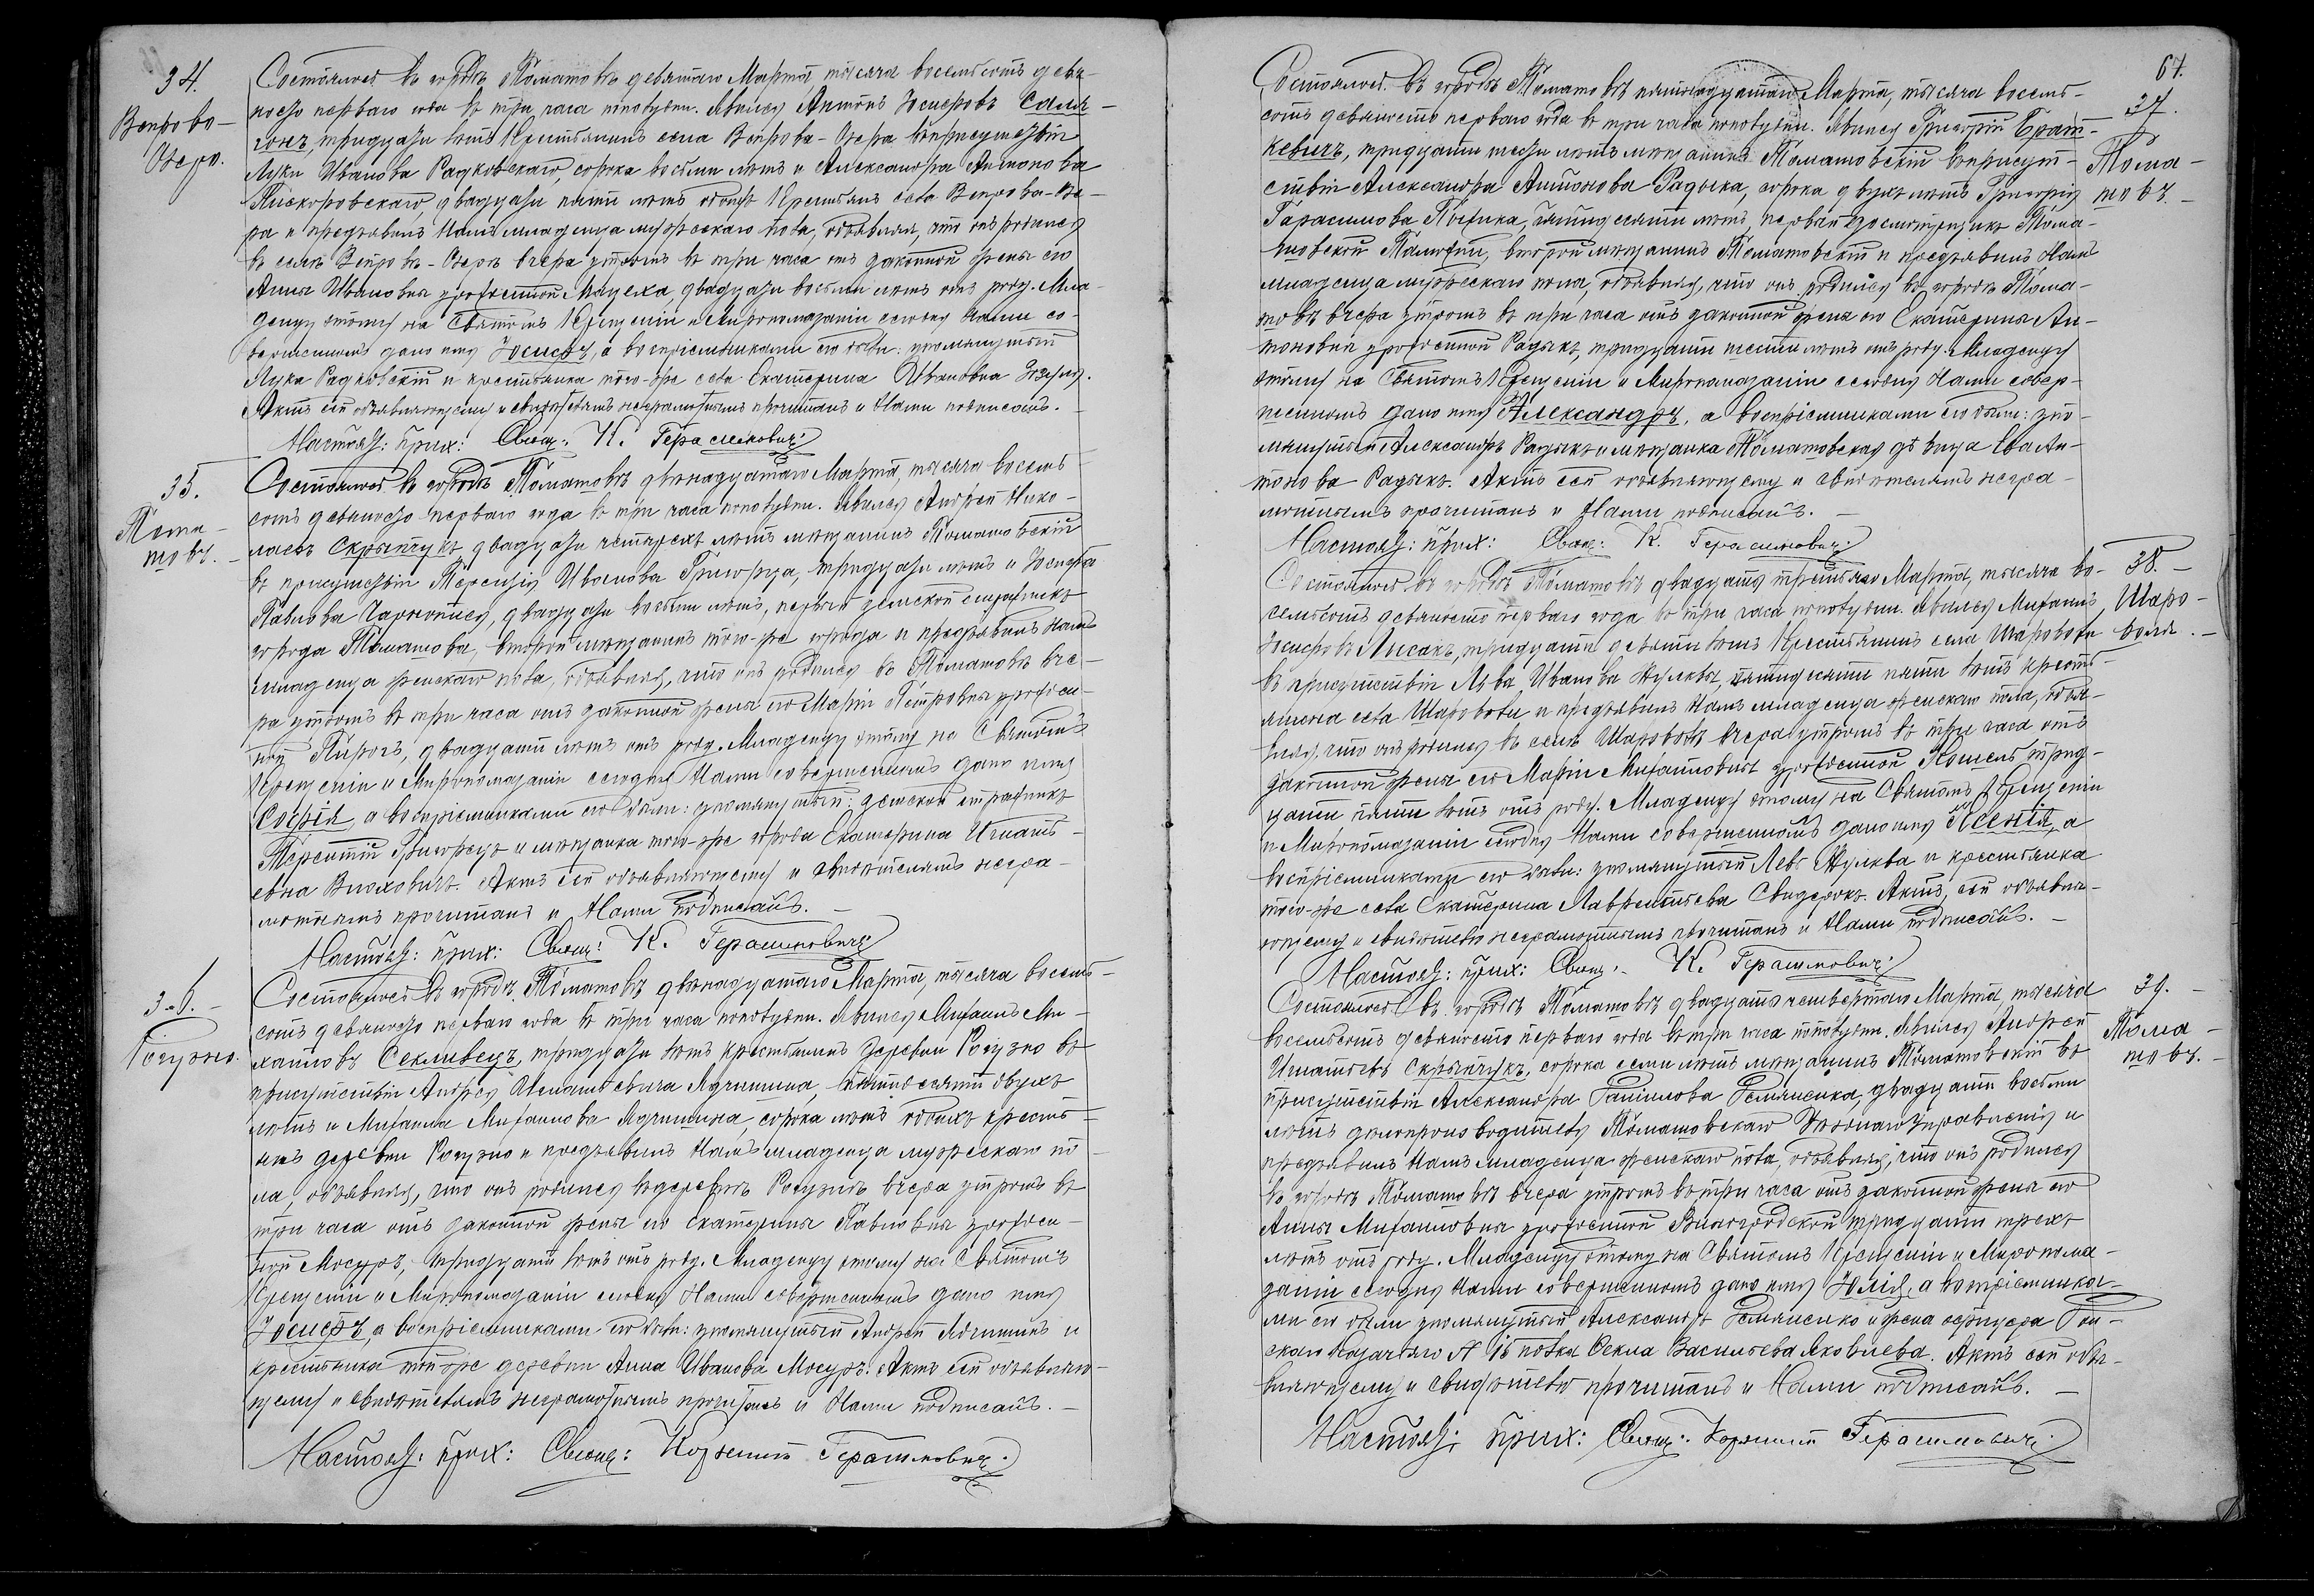 34.
Вепрово-
Озеро.
Состоялось въ городѣ Томашовѣ девятаго Марта, тысяча восемьсотъ девя-
носто перваго года въ три часа пополудни. Явился Антонъ Іосифовъ Саля-
гонъ, тридцати лѣтъ Крестьянинъ села Вепрова-Озера въ присутствіи
Луки Иванова Радковскаго, сорока восьми лѣтъ и Александра Антонова
Пискоровскаго, двадцати пяти лѣтъ обоихъ Крестьянъ села Вепрова-Озе-
ра и предъявилъ Намъ младенца мужескаго пола, объявляя, что онъ родился
въ селѣ Вепровѣ-Озерѣ вчера утромъ въ три часа отъ законной жены его
Анны Ивановны урожденной Мацеха, двадцати восьми лѣтъ отъ роду. Мла-
денцу этому на Святомъ Крещеніи и Миропомазаніи сегодня Нами со-
вершенномъ дано имя Іосифъ, а воспріемниками его были: упомянутый
Лука Радковскій и крестьянка того-же села Екатерина Ивановна
Актъ сей объявляющему и свидѣтелямъ неграмотнымъ прочитанъ и Нами подписанъ.
Настоят: прих: Свящ: К. Герасимовичъ
35.
Тома-
шовъ.
Состоялось въ городѣ Томашовѣ двѣнадцатаго Марта, тысяча восемь-
сотъ девяносто перваго года въ три часа пополудни. Явился Андрей Нико-
лаевъ Скрыпчукъ, двадцати четырехъ лѣтъ мѣщанинъ Томашовскій
въ присутствіи Терентія Иванова Григорца, тридцати лѣтъ и Іосифа
Павлова Чарнописа, двадцати восьми лѣтъ, первый земской стражникъ
города Томашова, второй мѣщанинъ того-же города и предъявилъ Намъ
младенца женскаго пола, объявляя, что онъ родился въ Томашовѣ вче-
ра утромъ въ три часа отъ законной жены его Маріи Петровны урожден-
ной Пирогъ, двадцати лѣтъ отъ роду. Младенцу этому на Святомъ
Крещеніи и Миропомазаніи сегодня Нами совершенномъ дано имя
Софія, а воспріемниками его были: упомянутый: земской стражникъ
Терентій Григорецъ и мѣщанка того-же города Екатерина Игнать-
евна Вноховичъ. Актъ сей объявляющему и свидѣтелямъ негра-
мотнымъ прочитанъ и Нами подписанъ.
Настоят: прих: Свящ: К. Герасимовичъ
36.
Рогузно.
Состоялось въ городѣ Томашовѣ двѣнадцатаго Марта, тысяча восемь-
сотъ девяносто перваго года въ три часа пополудни. Явился Михаилъ Ми-
хайловъ Секливецъ, тридцати лѣтъ крестьянинъ деревни Рогузно въ
присутствіи Андрея Игнатьевича Лучишина, пятидесяти двухъ
лѣтъ и Михаила Михайлова Лучишина, сорока лѣтъ обоихъ кресть-
янъ деревни Рогузно и предъявилъ Намъ младенца мужескаго по-
ла, объявляя, что онъ родился въ деревнѣ Рогузнѣ вчера утромъ въ
три часа отъ законной жены его Екатерины Павловны урожден-
ной Мосуръ, тридцати лѣтъ отъ роду. Младенцу этому на Святомъ
Крещеніи и Миропомазаніи сегодня Нами совершенномъ дано имя
Іосифъ, а воспріемниками его были: упомянутый Андрей Лучишинъ и
крестьянка той-же деревни Анна Иванова Мосуръ. Актъ сей объявляю-
щему и свидѣтелямъ неграмотнымъ прочитанъ и Нами подписанъ.
Настоят: прих: Свящ: Корнилій Герасимовичъ.
64.
37.
Тома-
шовъ.
Состоялось въ городѣ Томашовѣ пятнадцатаго Марта, тысяча восемь-
сотъ девяносто перваго года въ три часа пополудни. Явился Григорій Брат-
кевичъ, тридцати шести лѣтъ мѣщанинъ Томашовскій въ присут-
ствіи Александра Антонова Радыка, сорока двухъ лѣтъ Григорія
Гарасимова Почика, пятидесяти лѣтъ, первый досмотрщикъ Тома-
шовской Таможни, второй мѣщанинъ Томашовскій и предъявилъ Намъ
младенца мужескаго пола, объявляя, что онъ родился въ городѣ Тома-
шовѣ вчера утромъ въ три часа отъ законной жены его Екатерины Ан-
тоновны урожденной Радыкъ, тридцати шести лѣтъ отъ роду. Младенцу
этому на Святомъ Крещеніи и Миропомазаніи сегодня Нами совер-
шенномъ дано имя Александръ, а воспріемниками его были: упо-
мянутый Александръ Радыкъ и мѣщанка Томашовская дѣвица Ева Ан-
тонова Радыкъ. Актъ сей объявляющему и свидѣтелямъ негра-
мотнымъ прочитанъ и Нами подписанъ.
Настоят: прих: Свящ: К. Герасимовичъ
38.
Шаро-
воля.
Состоялось въ городѣ Томашовѣ двадцать третьяго Марта, тысяча во-
семьсотъ девяносто перваго года въ три часа пополудни. Явился Михаилъ
Іосифовъ Лисакъ, тридцати девяти лѣтъ Крестьянинъ села Шароволи
въ присутствіи Льва Иванова Жулквы, пятидесяти пяти лѣтъ кресть-
янина села Шароволи и предъявилъ Намъ младенца женскаго пола, объя-
вляя, что онъ родился въ селѣ Шароволѣ вчера утромъ въ три часа отъ
законной жены его Маріи Михайловны урожденной Кошель трид-
цати пяти лѣтъ отъ роду. Младенцу этому на Святомъ Крещеніи
и Миропомазаніи сегодня Нами совершенномъ дано имя Ксенія, а
воспріемниками его были: упомянутый Левъ Жулква и крестьянка
того-же села Екатерина Лаврентьева Свидерокъ. Актъ сей объявля-
ющему и свидѣтелю неграмотнымъ прочитанъ и Нами подписанъ.
Настоят: прих: Свящ: К. Герасимовичъ
39.
Тома-
шовъ.
Состоялось въ городѣ Томашовѣ двадцать четвертаго Марта, тысяча
восемьсотъ девяносто перваго года въ три часа пополудни. Явился Андрей
Игнатьевъ Скрыпчукъ, сорока семи лѣтъ мѣщанинъ Томашовскій въ
присутствіи Александра Гаврилова Демяненка, двадцати восьми
лѣтъ дѣлопроизводителя Томашовскаго Уѣзднаго Управленія и
предъявилъ Намъ младенца женскаго пола, объявляя, что онъ родился
въ городѣ Томашовѣ вчера утромъ въ три часа отъ законной жены его
Анны Михайловны урожденной Виногродской тридцати трехъ
лѣтъ отъ роду. Младенцу этому на Святомъ Крещеніи и Миропома-
заніи сегодня Нами совершенномъ дано имя Юлія, а воспріемника-
ми его были упомянутый Александръ Демяненко и жена офицера Дон-
скаго Казачяго N 15 полка Фекла Васильева Яковлева. Актъ сей объя-
вляющему и свидѣтелю прочитанъ и Нами подписанъ.
Настоят: прих: Свящ: Корнилій Герасимовичъ.